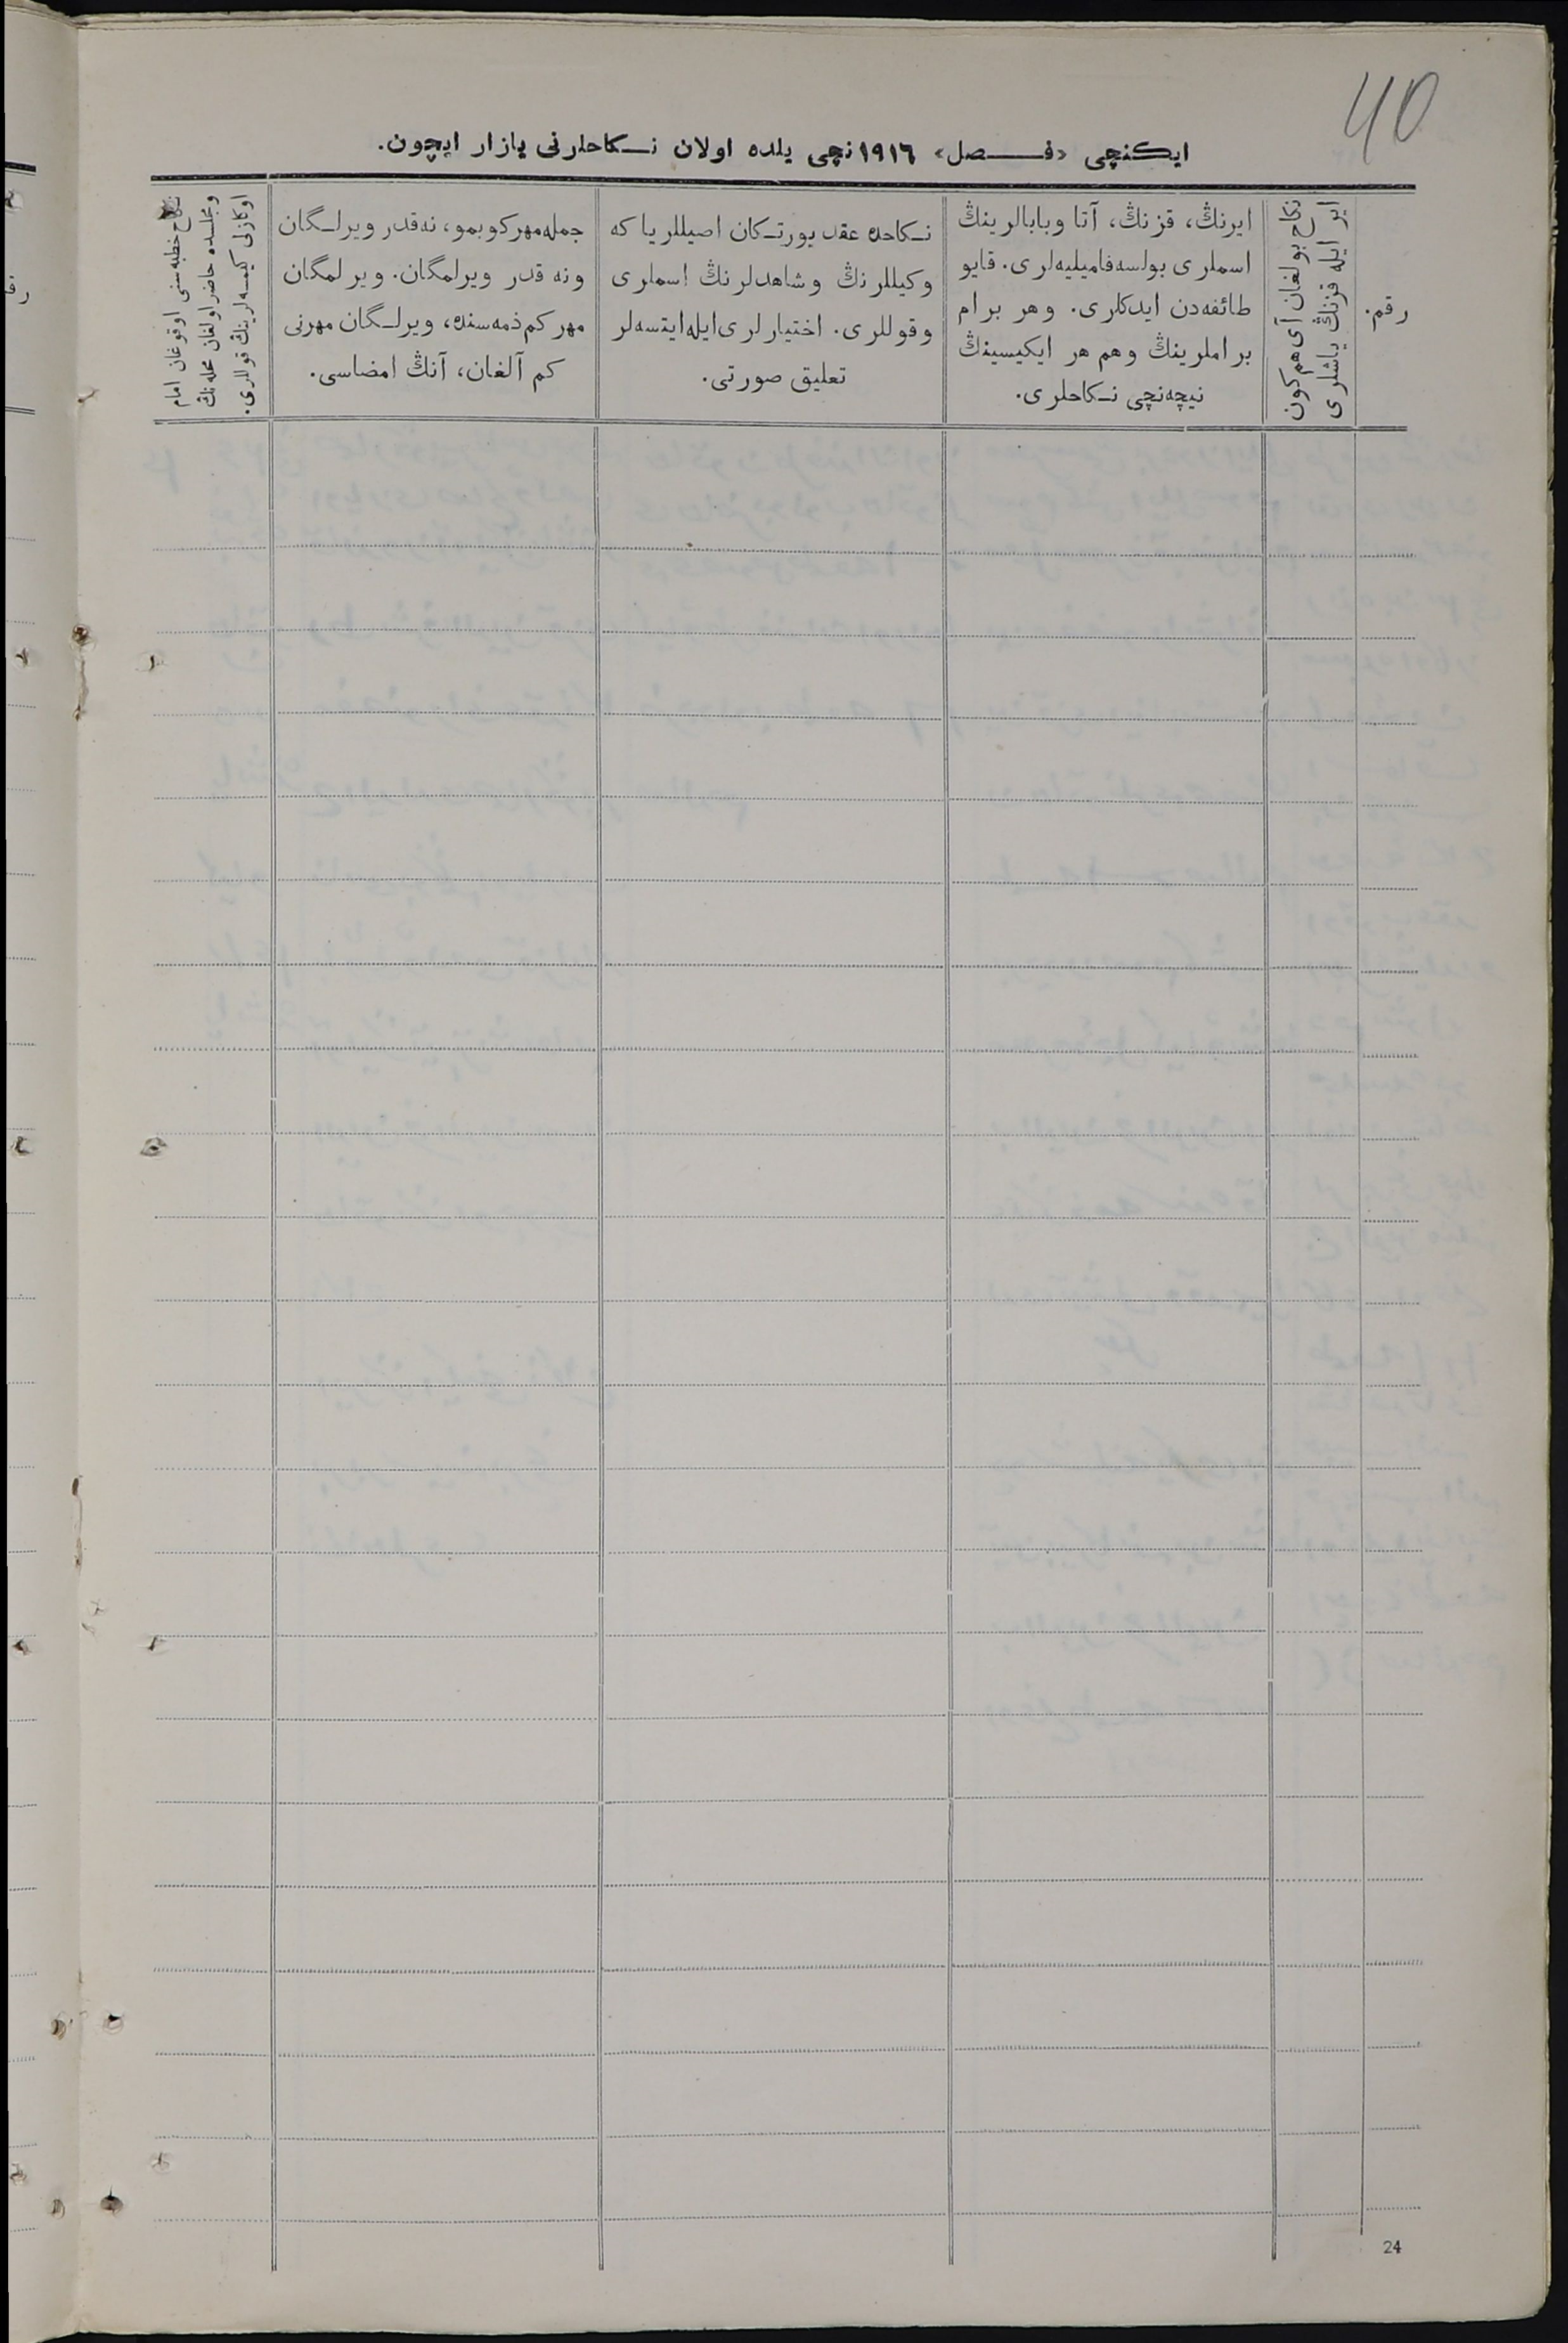 40
ایكنچی «فـــصل» ١٩١٦نچی یلده اولان نـكاحلرنی یازار ایچون.
رقم.
نكاح بولغان آی هم كون
ایر ایله قزنڭ یاشلری
ایرنڭ، قزنڭ، آتا وبابالرینڭ
اسملری بولسه فامیلیه‌لری. قایو
طائفه‌دن ایدكلری. وهر برام
براملرینڭ وهم هر ایكیسینڭ
نیچه‌نچی نـكاحلری.
نـكاحده عقد یورتـكان اصیللر یا كه
وكیللرنڭ وشاهدلرنڭ اسملری
وقوللری. اختیارلری ایله ایتسه‌لر
تعلیق صورتی.
جمله مهر كوبمو، نه قدر ویرلـگان
ونه قدر ویرلمگان. ویرلمگان
مهر كم ذمه‌سنده، ویرلـگان مهرنی
كم آلغان، آنڭ امضاسی.
نكاح خطبه‌سنی اوقوغان امام
ومجلسده حاضر اولغان محله‌نڭ
اوكازلی كیمسه‌لرینڭ قوللری.
24